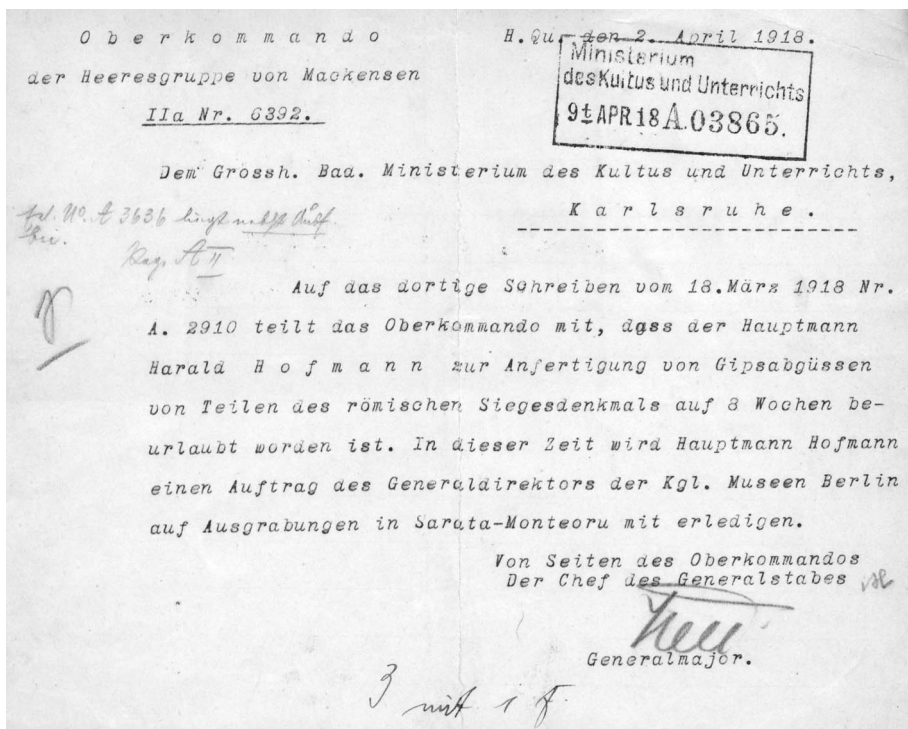 Oberkommando
H. Qu., den 2. April 1918.
der Heeresgruppe von Mackensen
IIa Nr. 6392.
Ministerium
des Kultus und Unterrichts
9t APR 18 A.03865.
Dem Grossh. Bad. Ministerium des Kultus und Unterrichts,
Karlsruhe.
No. A 3636 liegt
bei.
Reg. A II
Auf das dortige Schreiben vom 18.März 1918 Nr.
A. 2910 teilt das Oberkommando mit, dass der Hauptmann
Harald Hofmann zur Anfertigung von Gipsabgüssen
von Teilen des römischen Siegesdenkmals auf 8 Wochen be-
urlaubt worden ist. In dieser Zeit wird Hauptmann Hofmann
einen Auftrag des Generaldirektors der Kgl. Museen Berlin
auf Ausgrabungen in Sarata-Monteoru mit erledigen.
Von Seiten des Oberkommandos
Der Chef des Generalstabes
Generalmajor.
3 mit 1 F.